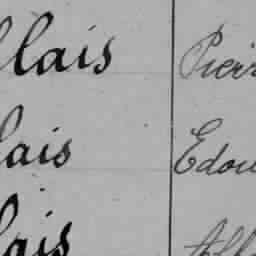 llais Pierr
lais Edou
lais